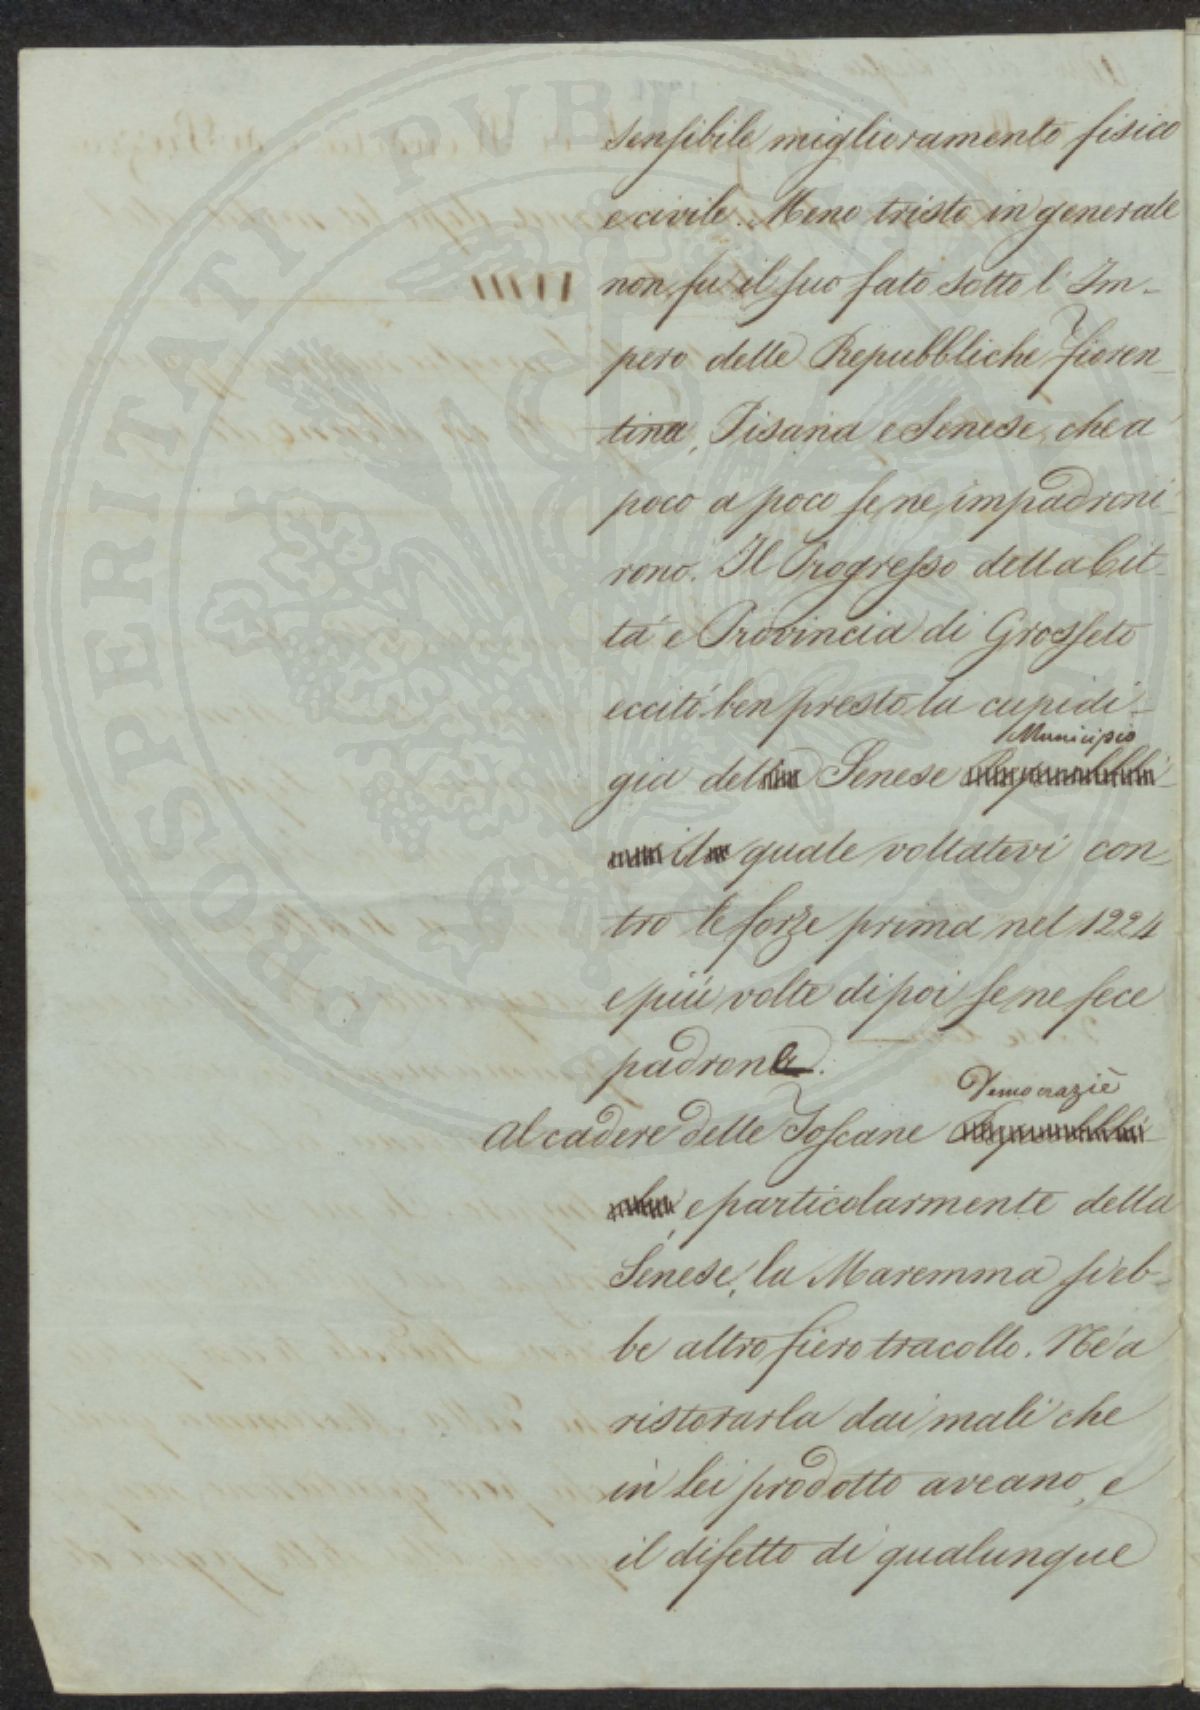 sensibile miglioramento fisico
e civile. Meno tristo in generale
non fu il suo fato sotto l'Im-
pero delle Repubbliche Fioren-
tina, Pisana e Senese, che a
poco a poco se ne impadroni-
rono. Il Progresso della Cit-
tà e Provincia di Grosseto
eccitò ben presto la cupidi-
Municipio
gia del Senese
il quale voltatevi con-
tro le forze prima nel 1224
e più volte di poi se ne fece
padrone.
Democrazie
Al cadere delle Toscane
e particolarmente della
Senese, la Maremma s'eb-
be altro fiero tracollo. Nè a
ristorarla dai mali che
in lei prodotto aveano, e
il difetto di qualunque
PROSPERITATI PUBLICAE